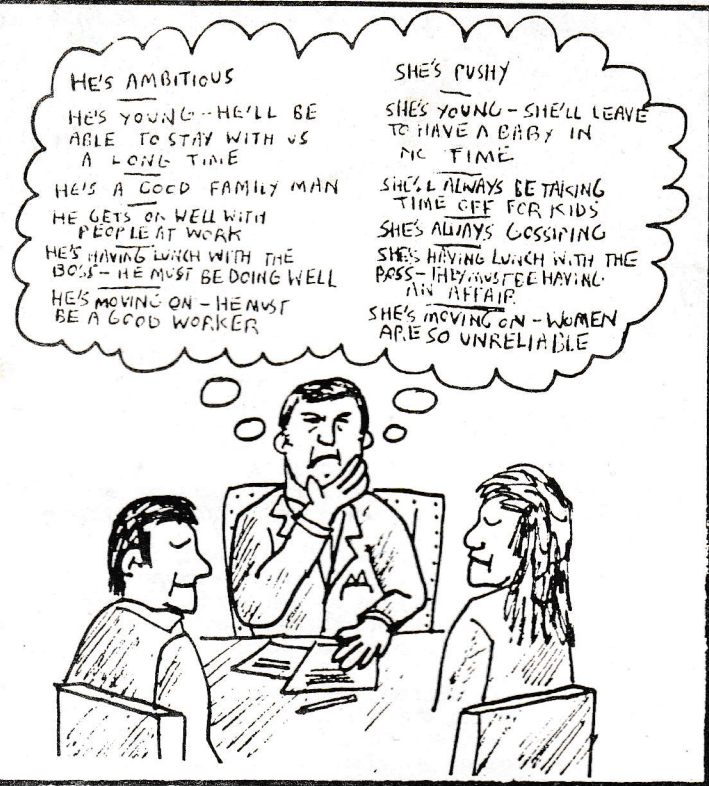 HE'S AMBITIOUS
HE'S YOUNG - HE'LL BE
ABLE TO STAY WITH US
A LONG TIME
HE'S A GOOD FAMILY MAN
HE GETS ON WELL WITH
PEOPLE AT WORK
HE'S HAVING LUNCH WITH THE
BOSS - HE MUST BE DOING WELL
HE'S MOVING ON - HE MUST
BE A GOOD WORKER
SHE'S PUSHY
SHE'S YOUNG - SHE'LL LEAVE
TO HAVE A BABY IN
NO TIME
SHE'LL ALWAYS BE TAKING
TIME OFF FOR KIDS
SHE'S ALWAYS GOSSIPING
SHE'S HAVING LUNCH WITH THE
BOSS - THEY MUST BE HAVING
AN AFFAIR
SHE'S MOVING ON - WOMEN
ARE SO UNRELIABLE